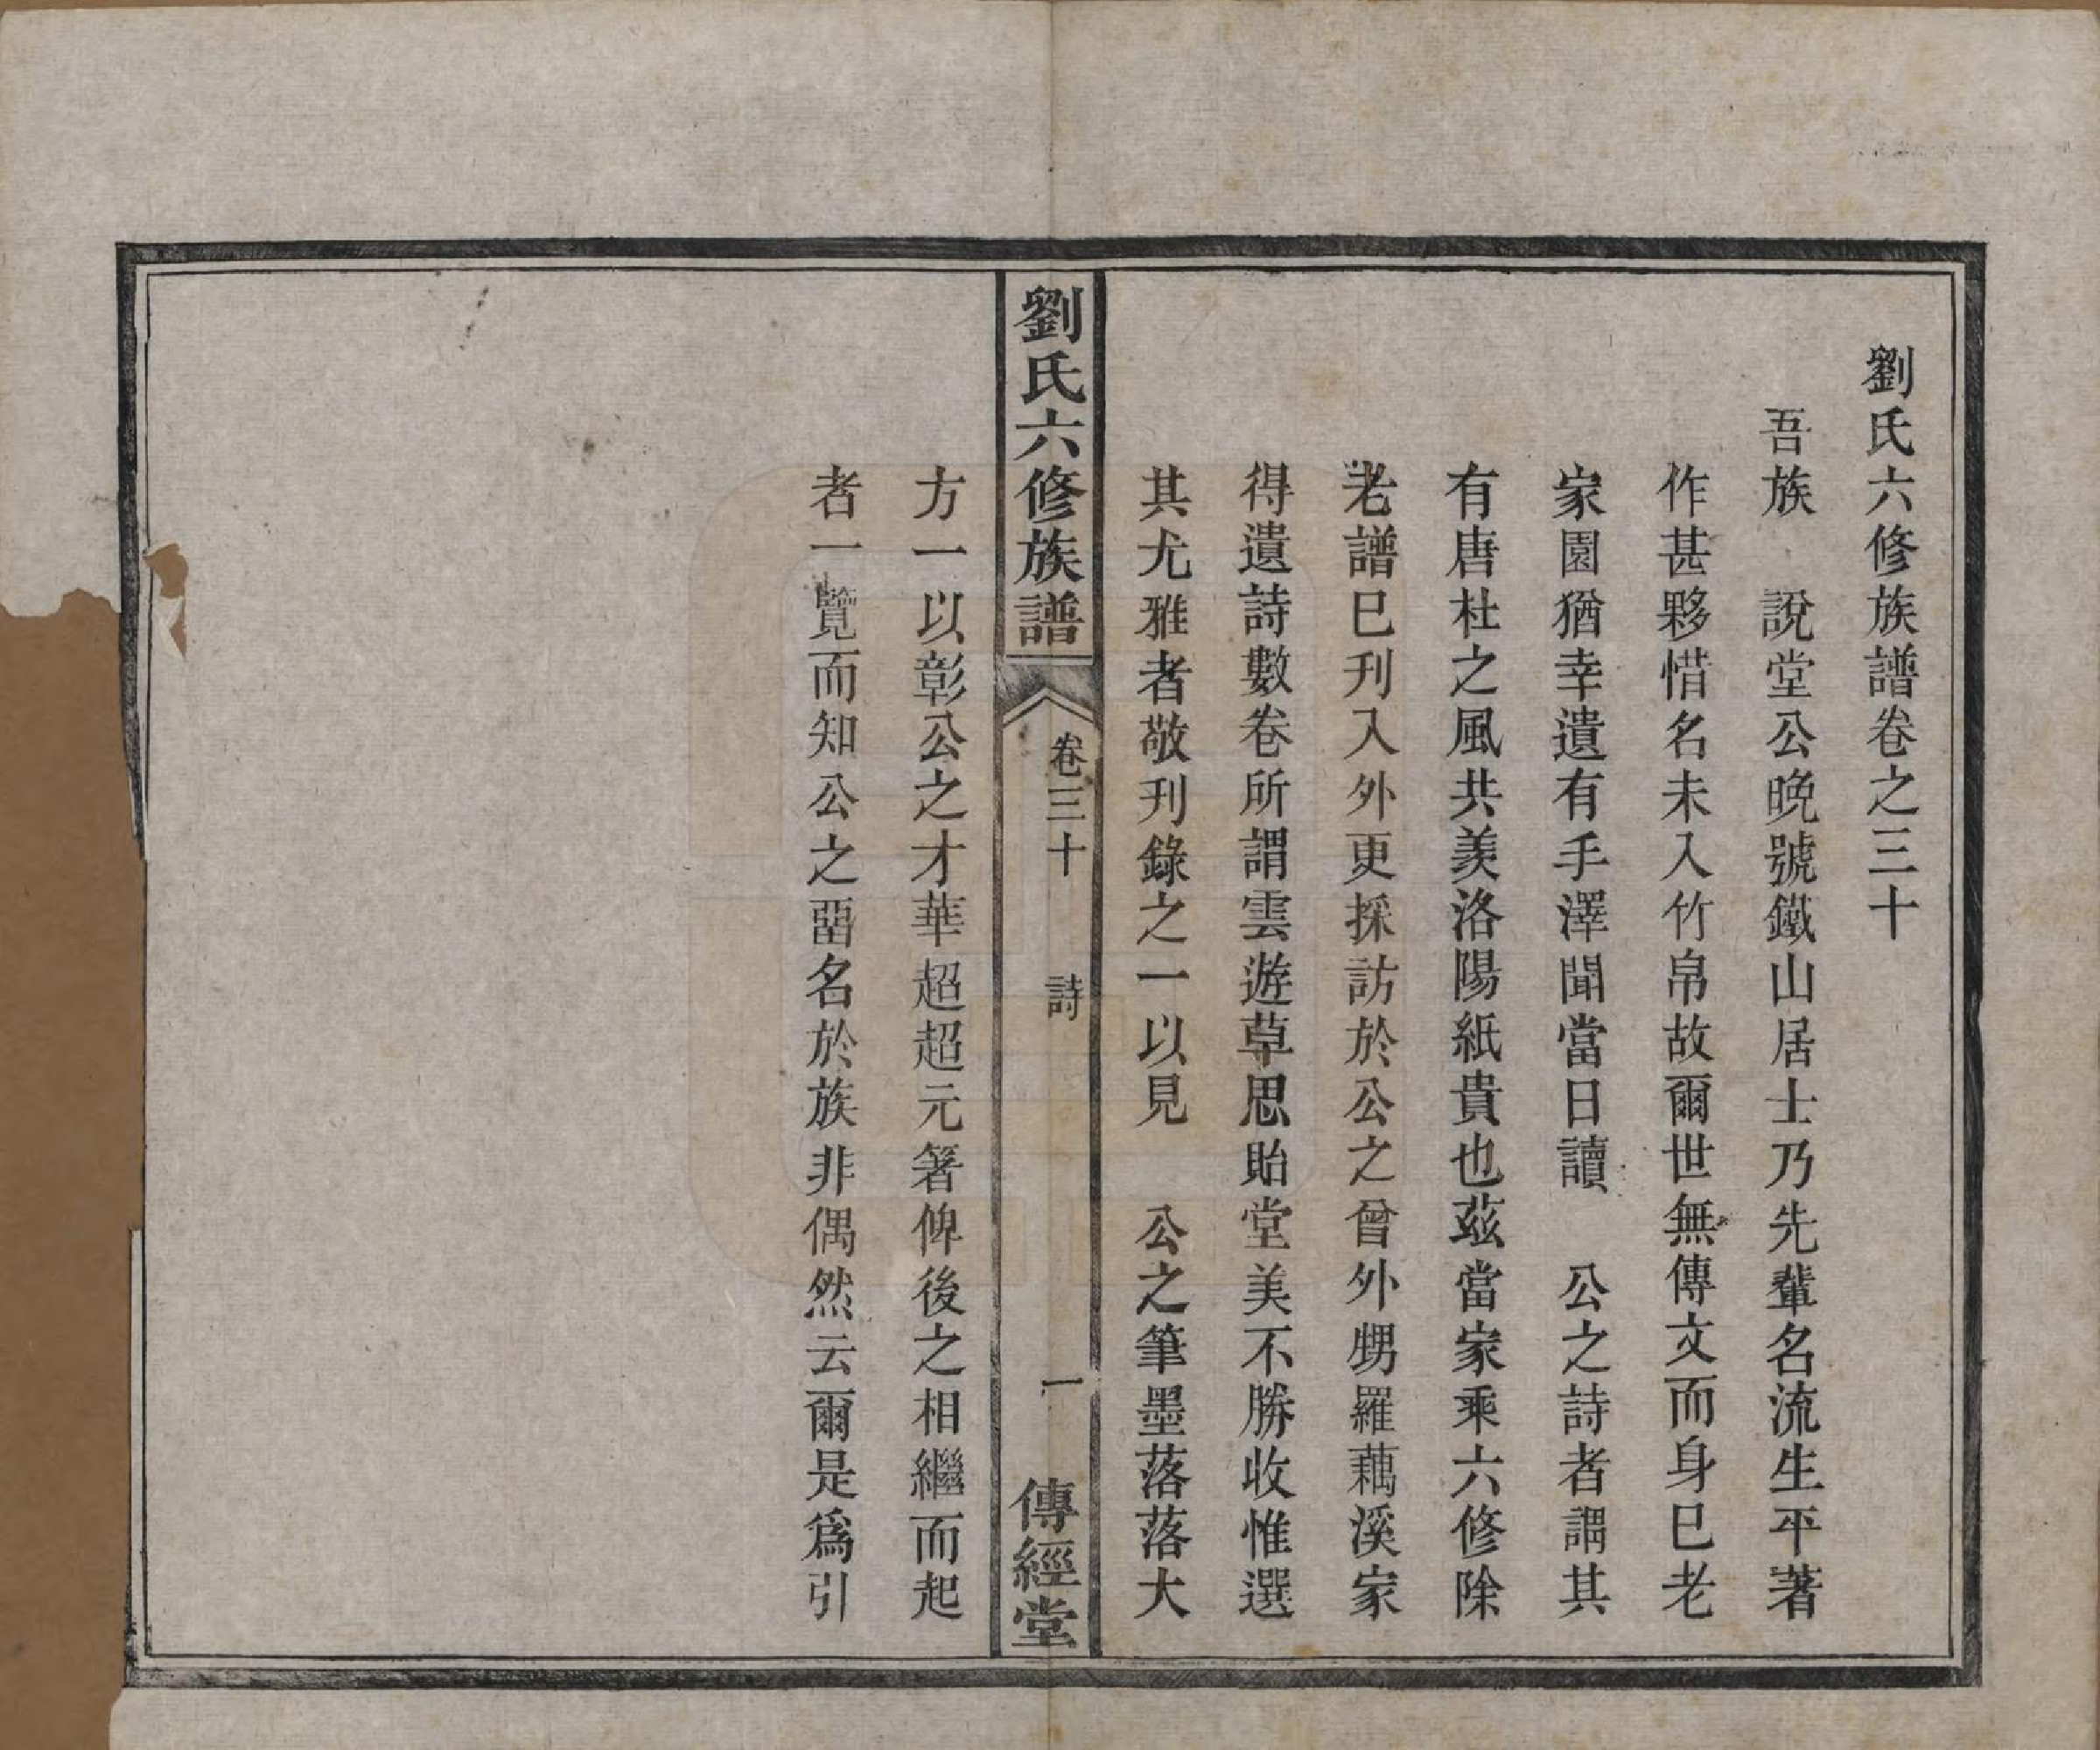 劉氏六修族譜卷之三十
吾族　說堂公晚號鐵山居士乃先輩名流生平著
作甚夥惜名未入竹帛故爾世無傳文而身巳老
家園猶幸遺有手澤聞當日讀　公之詩者謂其
有唐杜之風共羨洛陽紙貴也茲當家乘六修除
老譜巳刋入外更採訪於公之曾外甥羅藕溪家
得遺詩數卷所謂雲遊草思貽堂美不勝收惟選
其尤雅者敬刋錄之一以見　公之筆墨落落大
劉氏六修族譜　卷三十　詩　一　傳經堂
方一以彰公之才華超超元箸俾後之相繼而起
者一覽而知公之噩名於族非偶然云爾是爲引